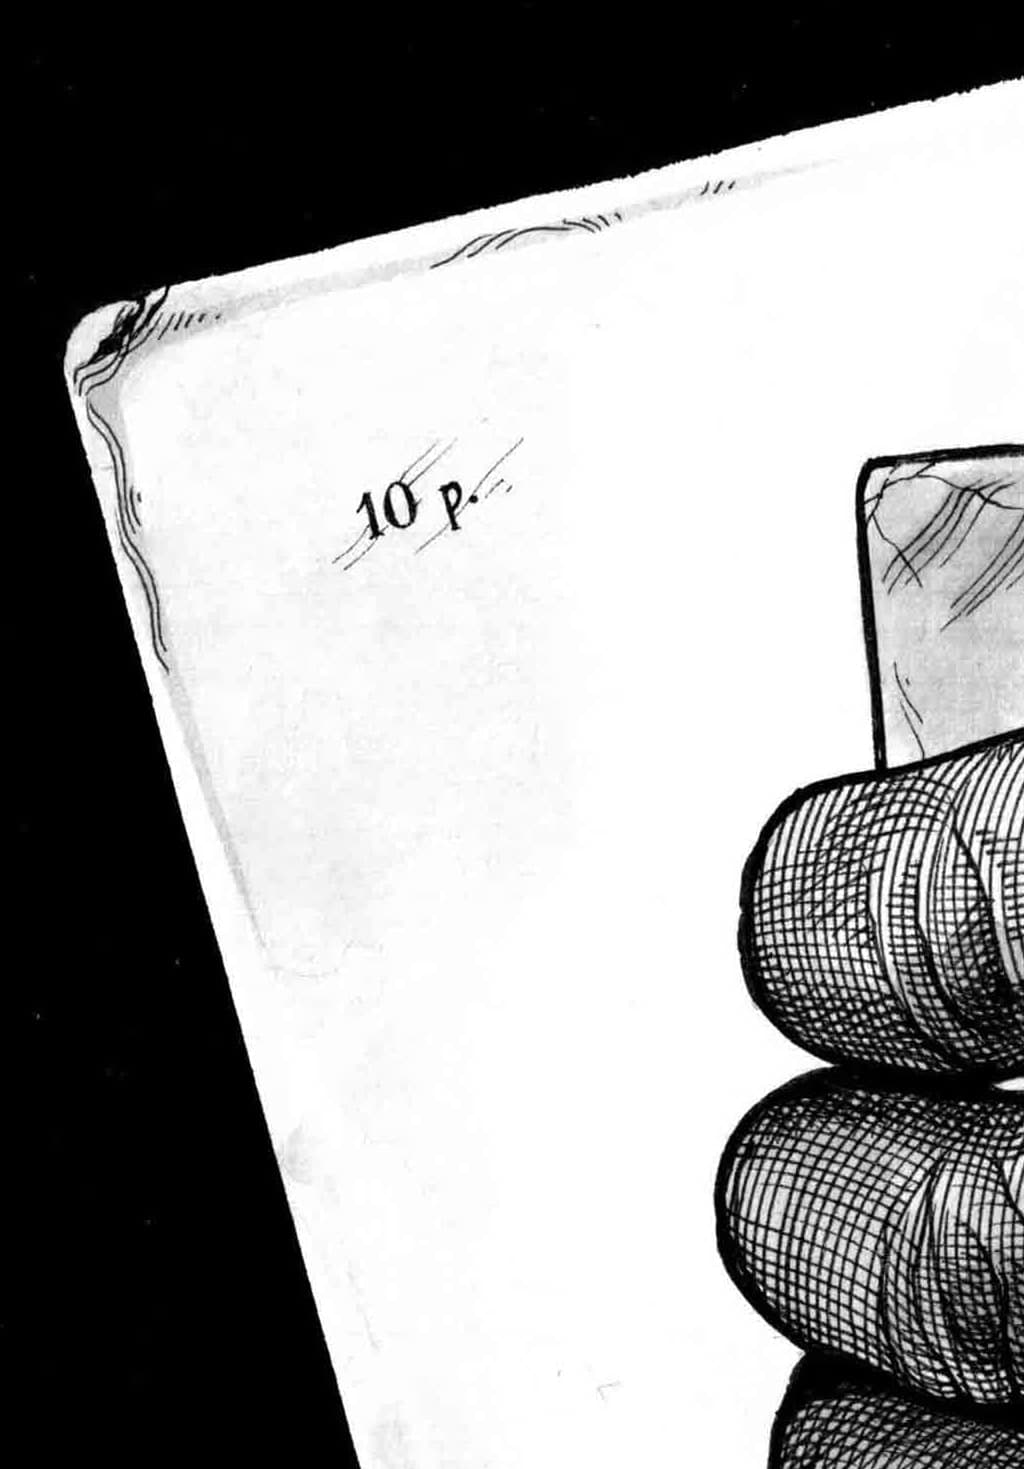 10 p.